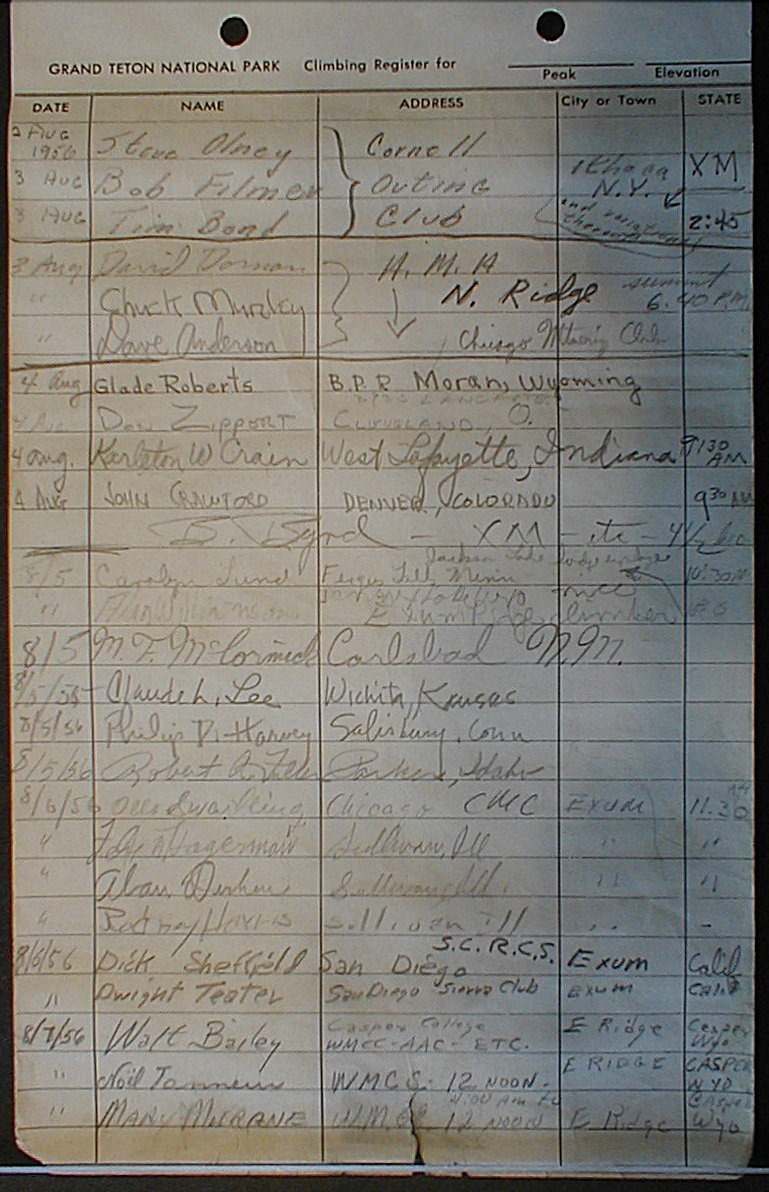 GRAND TETON NATIONAL PARK Climbing Register for
Peak Elevation
DATE NAME ADDRESS City or Town STATE
2 Aug 1956 Steve Olney Cornell Ithaca XM
3 Aug Bob Filmer Outing N.Y.
3 Aug Tim Bond Club and variations 2:45
3 Aug David Dornan H. M. A
" Chuck Murley N. Ridge summit 6:40 P.M.
" Dave Anderson Chicago Mtnrg Club
4 Aug Glade Roberts B.P.R. Moran, Wyoming
Don Zipport Cleveland, O.
4 Aug. Karleton W Crain West Lafayette, Indiana 9:30 AM
4 Aug John Crawford Denver, Colorado 9:30 AM
B. Byrd - XM - etc - 4 1/2
8/5 Carolyn Lund Fergus Falls Minn Jackson Lake Lodge 10:30
" Exum Ridge climber
8/5 M. F. McCormick Carlsbad N.M.
8/5/55 Claude L. Lee Wichita, Kansas
8/5/56 Philip D. Harvey Salisbury, Conn
8/5/56 Robert Parker, Idaho
8/6/56 Chicago CMC Exum 11.30
" Hagerman Sullivan, Ill " "
" Alan Sullivan, Ill. " "
" Rodney Sullivan Ill " -
8/6/56 Dick Sheffield San Diego S.C. R.C.S. Exum Calif
" Dwight Teater San Diego Sierra Club Exum Calif
8/7/56 Walt Bailey Casper College E Ridge Casper
WMCC-AAC-ETC. Wyo
" Noil WMCS - 12 NOON - E RIDGE CASPER WYO
" Mary Murane 12 NOON E Ridge Casper Wyo